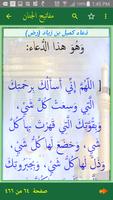 1:45 PM
مفاتيح الجنان
دعاء كميل بن زياد (رض)
وَهُوَ هذَا الدُّعاء:
[ اَللّهُمَّ إنّي أسألُكَ بِرَحمَتِكَ
الَّتي وَسِعَت كُلَّ شَيْءٍ،
وَبِقُوَّتِكَ الَّتي قَهَرْتَ بِها كُلَّ
شَيْءٍ، وَخَضَعَ لَها كُلُّ شَيْءٍ،
وَذَلَّ لَها كُلُّ شَيْءٍ، وَبِجَبَروتِكَ
صفحة ٦٤ من ٤٦٦